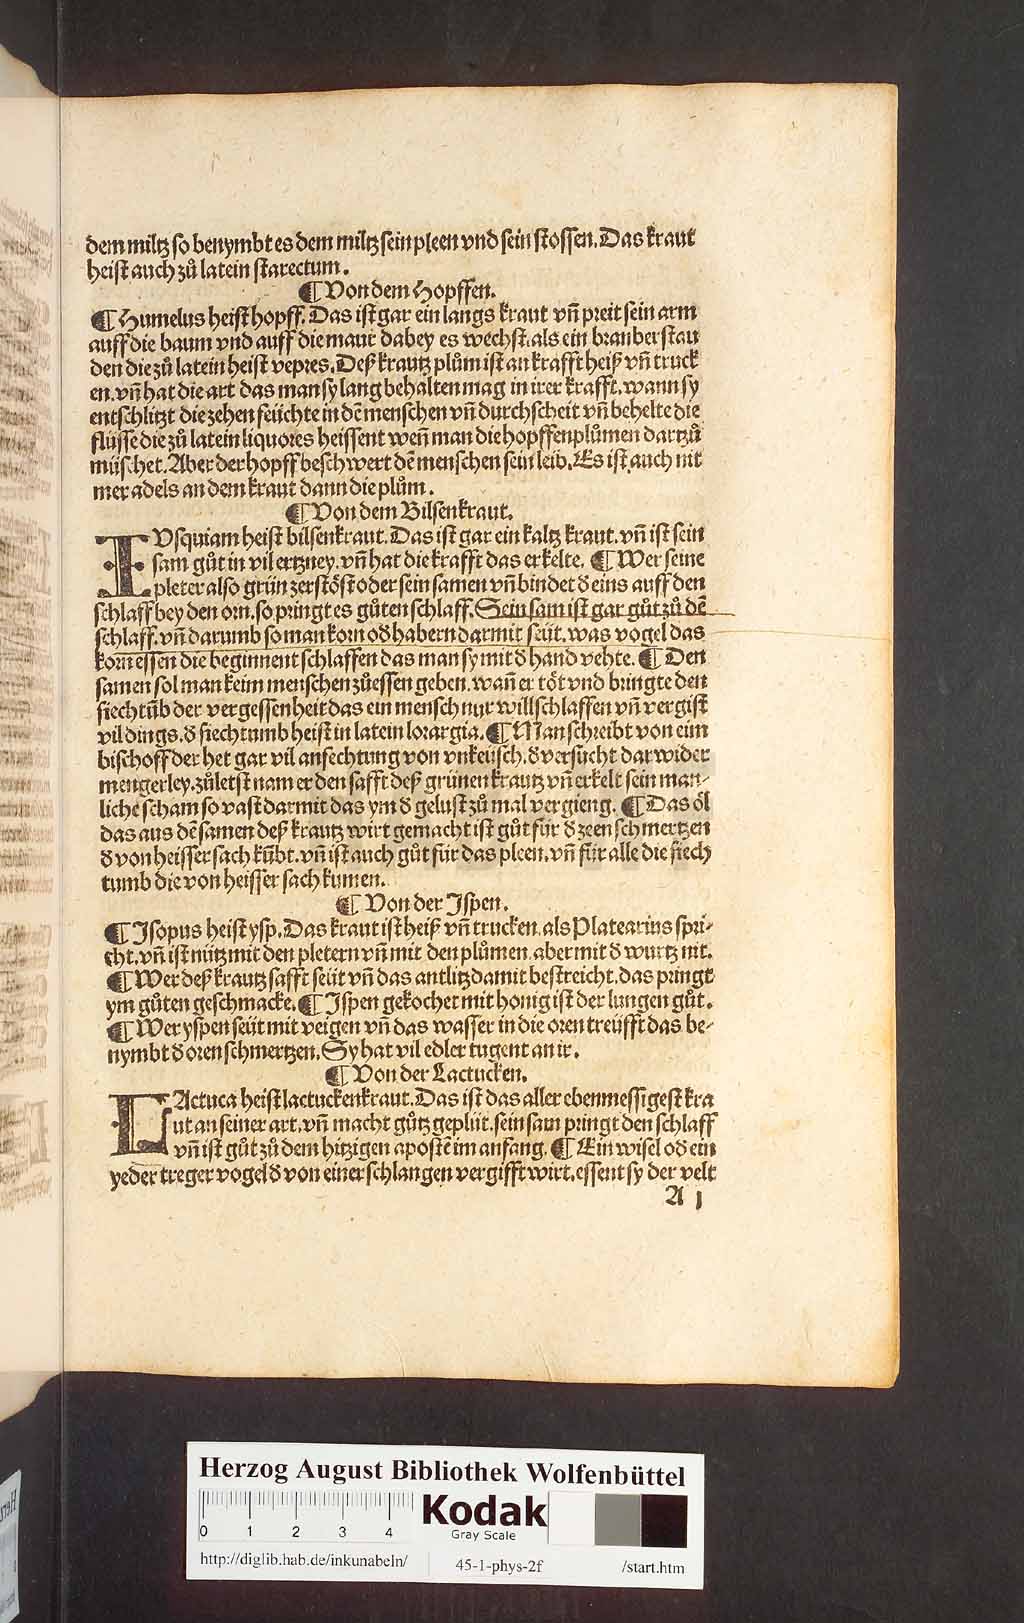 dem miltz so benymbt es dem miltz sein pleen vnd sein stossen. Das kraut
heist auch zů latein starectum.
¶ Von dem Hopffen.
¶ Humelus heist hopff. Das ist gar ein langs kraut vñ preit sein arm
auff die baum vnd auff die maur dabey es wechst. als ein branberstau
den die zů latein heist vepres. Deß krautz plům ist an krafft heiß vñ truck
en. vñ hat die art das man sy lang behalten mag in irer krafft. wann sy
entschlitzt die zehen feüchte in dē menschen vñ durchscheit vñ behelte die
flüsse die zů latein liquores heissent weñ man die hopffenplůmen dartzů
müschet. Aber der hopff beschwert dē menschen sein leib. Es ist auch nit
mer adels an dem kraut dann die plům.
¶ Von dem Bilsenkraut.
IUsquiam heist bilsenkraut. Das ist gar ein kaltz kraut. vñ ist sein
sam gůt in vil ertzney. vñ hat die krafft das er kelte. ¶ Wer seine
pleter also grün zerstöst oder sein samen vñ bindet d eins auff den
schlaff bey den orn. so pringt es gůten schlaff. Sein sam ist gar gůt zů dē
schlaff. vñ darumb so man korn od habern darmit seüt. was vogel das
korn essen die beginnent schlaffen das man sy mit d hand vehte. ¶ Den
samen sol man keim menschen zůessen geben. wañ er töt vnd bringte den
siechtūb der vergessenheit das ein mensch nur will schlaffen vñ vergist
vil dings. d siechtumb heist in latein lorargia. ¶ Man schreibt von eim
bischoff der het gar vil anfechtung von vnkeüsch. d versücht darwider
mengerley. zůletst nam er den safft deß grünen krautz vñ erkelt sein man-
liche scham so vast darmit das ym d gelust zů mal vergieng. ¶ Das öl
das aus dē samen deß krautz wirt gemacht ist gůt für d zeen schmertzen
d von heisser sach kūbt. vñ ist auch gůt für das pleen. vñ für alle die siech
tumb die von heisser sach kumen.
¶ Von der Ispen.
¶ Isopus heist ysp. Das kraut ist heiß vñ trucken. als Platearius spri-
cht. vñ ist nütz mit den pletern vñ mit den plůmen. aber mit d wurtz nit.
¶ Wer deß krautz safft seüt vñ das antlitz damit bestreicht. das pringt
ym gůten geschmacke. ¶ Ispen gekochet mit honig ist der lungen gůt.
¶ Wer yspen seüt mit veigen vñ das wasser in die oren treüfft das be-
nymbt d oren schmertzen. Sy hat vil edler tugent an ir.
¶ Von der Lactucken.
LActuca heist lactuckenkraut. Das ist das aller ebenmessigest kra
ut an seiner art. vñ macht gůtz geplüt. sein sam pringt den schlaff
vñ ist gůt zů dem hitzigen apostē im anfang. ¶ Ein wisel od ein
yeder treger vogel d von einer schlangen vergifft wirt. essent sy der velt
A j
Herzog August Bibliothek Wolfenbüttel
0 1 2 3 4
Kodak
Gray Scale
http://diglib.hab.de/inkunabeln/ 45-1-phys-2f /start.htm